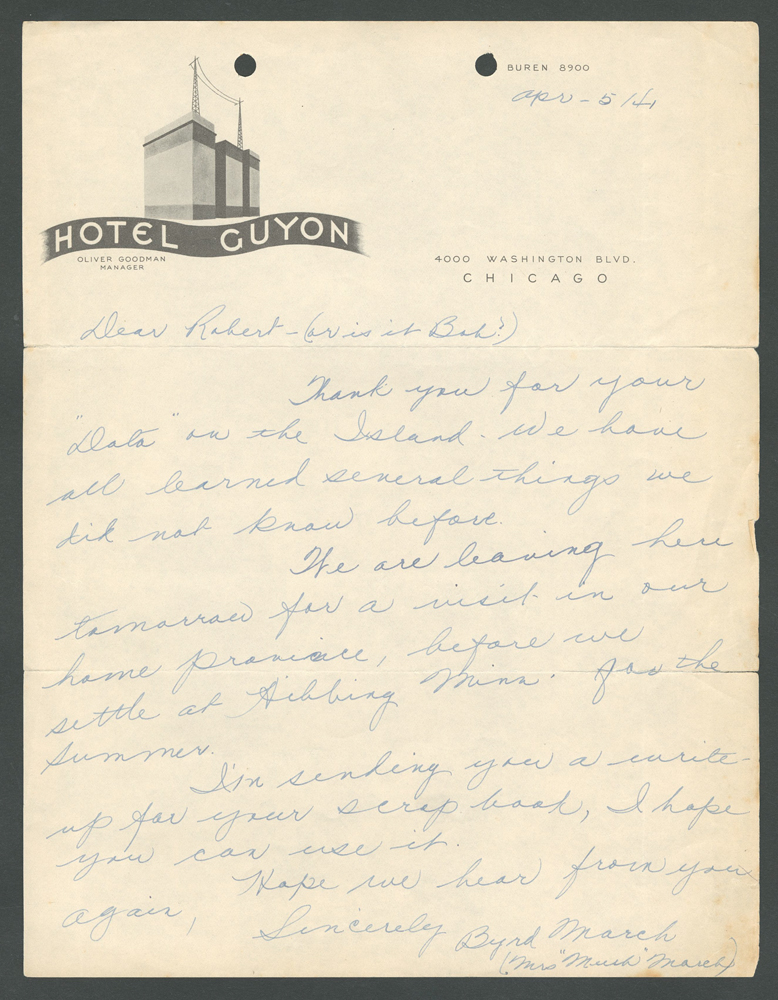 BUREN 8900
Apr - 5/41
HOTEL GUYON
OLIVER GOODMAN
MANAGER
4000 WASHINGTON BLVD.
CHICAGO
Dear Robert - (or is it Bob?)
Thank you for your
"Data" on the Island. We have
all learned several things we
did not know before.
We are leaving here
tomorrow for a visit in our
home province, before we
settle at Hibbing Minn. for the
Summer.
I'm sending you a write-
up for your scrap book, I hope
you can use it.
Hope we hear from you
again,
Sincerely Byrd March
(Mrs "Mush" March)